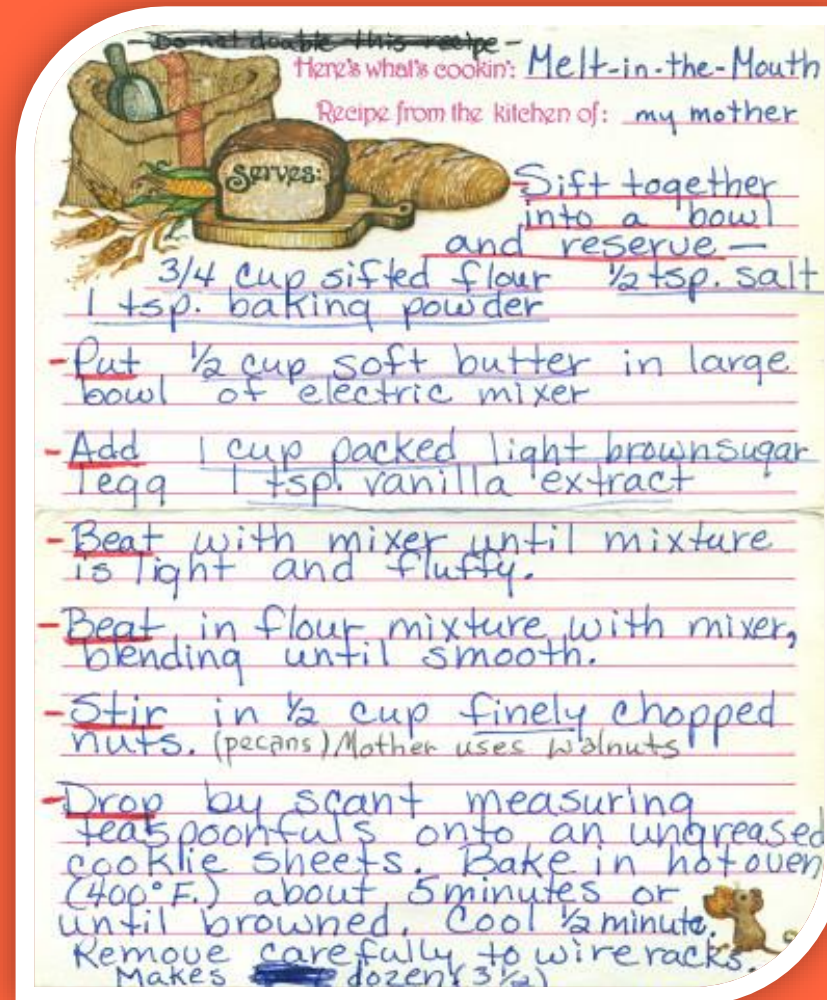 - Do not double this recipe -
Here's what's cookin': Melt-in-the-Mouth
Recipe from the kitchen of: my mother
Serves:
- Sift together
into a bowl
and reserve —
3/4 cup sifted flour 1/2 tsp. salt
1 tsp. baking powder
- Put 1/2 cup soft butter in large
bowl of electric mixer
- Add 1 cup packed light brownsugar
1 egg 1 tsp. vanilla extract
- Beat with mixer until mixture
is light and fluffy.
- Beat in flour mixture with mixer,
blending until smooth.
- Stir in 1/2 cup finely chopped
nuts. (pecans) Mother uses walnuts
- Drop by scant measuring
teaspoonfuls onto an ungreased
cooklie sheets. Bake in hot oven
(400°F.) about 5 minutes or
until browned. Cool 1/2 minute.
Remove carefully to wire racks.
Makes dozen (3 1/2)